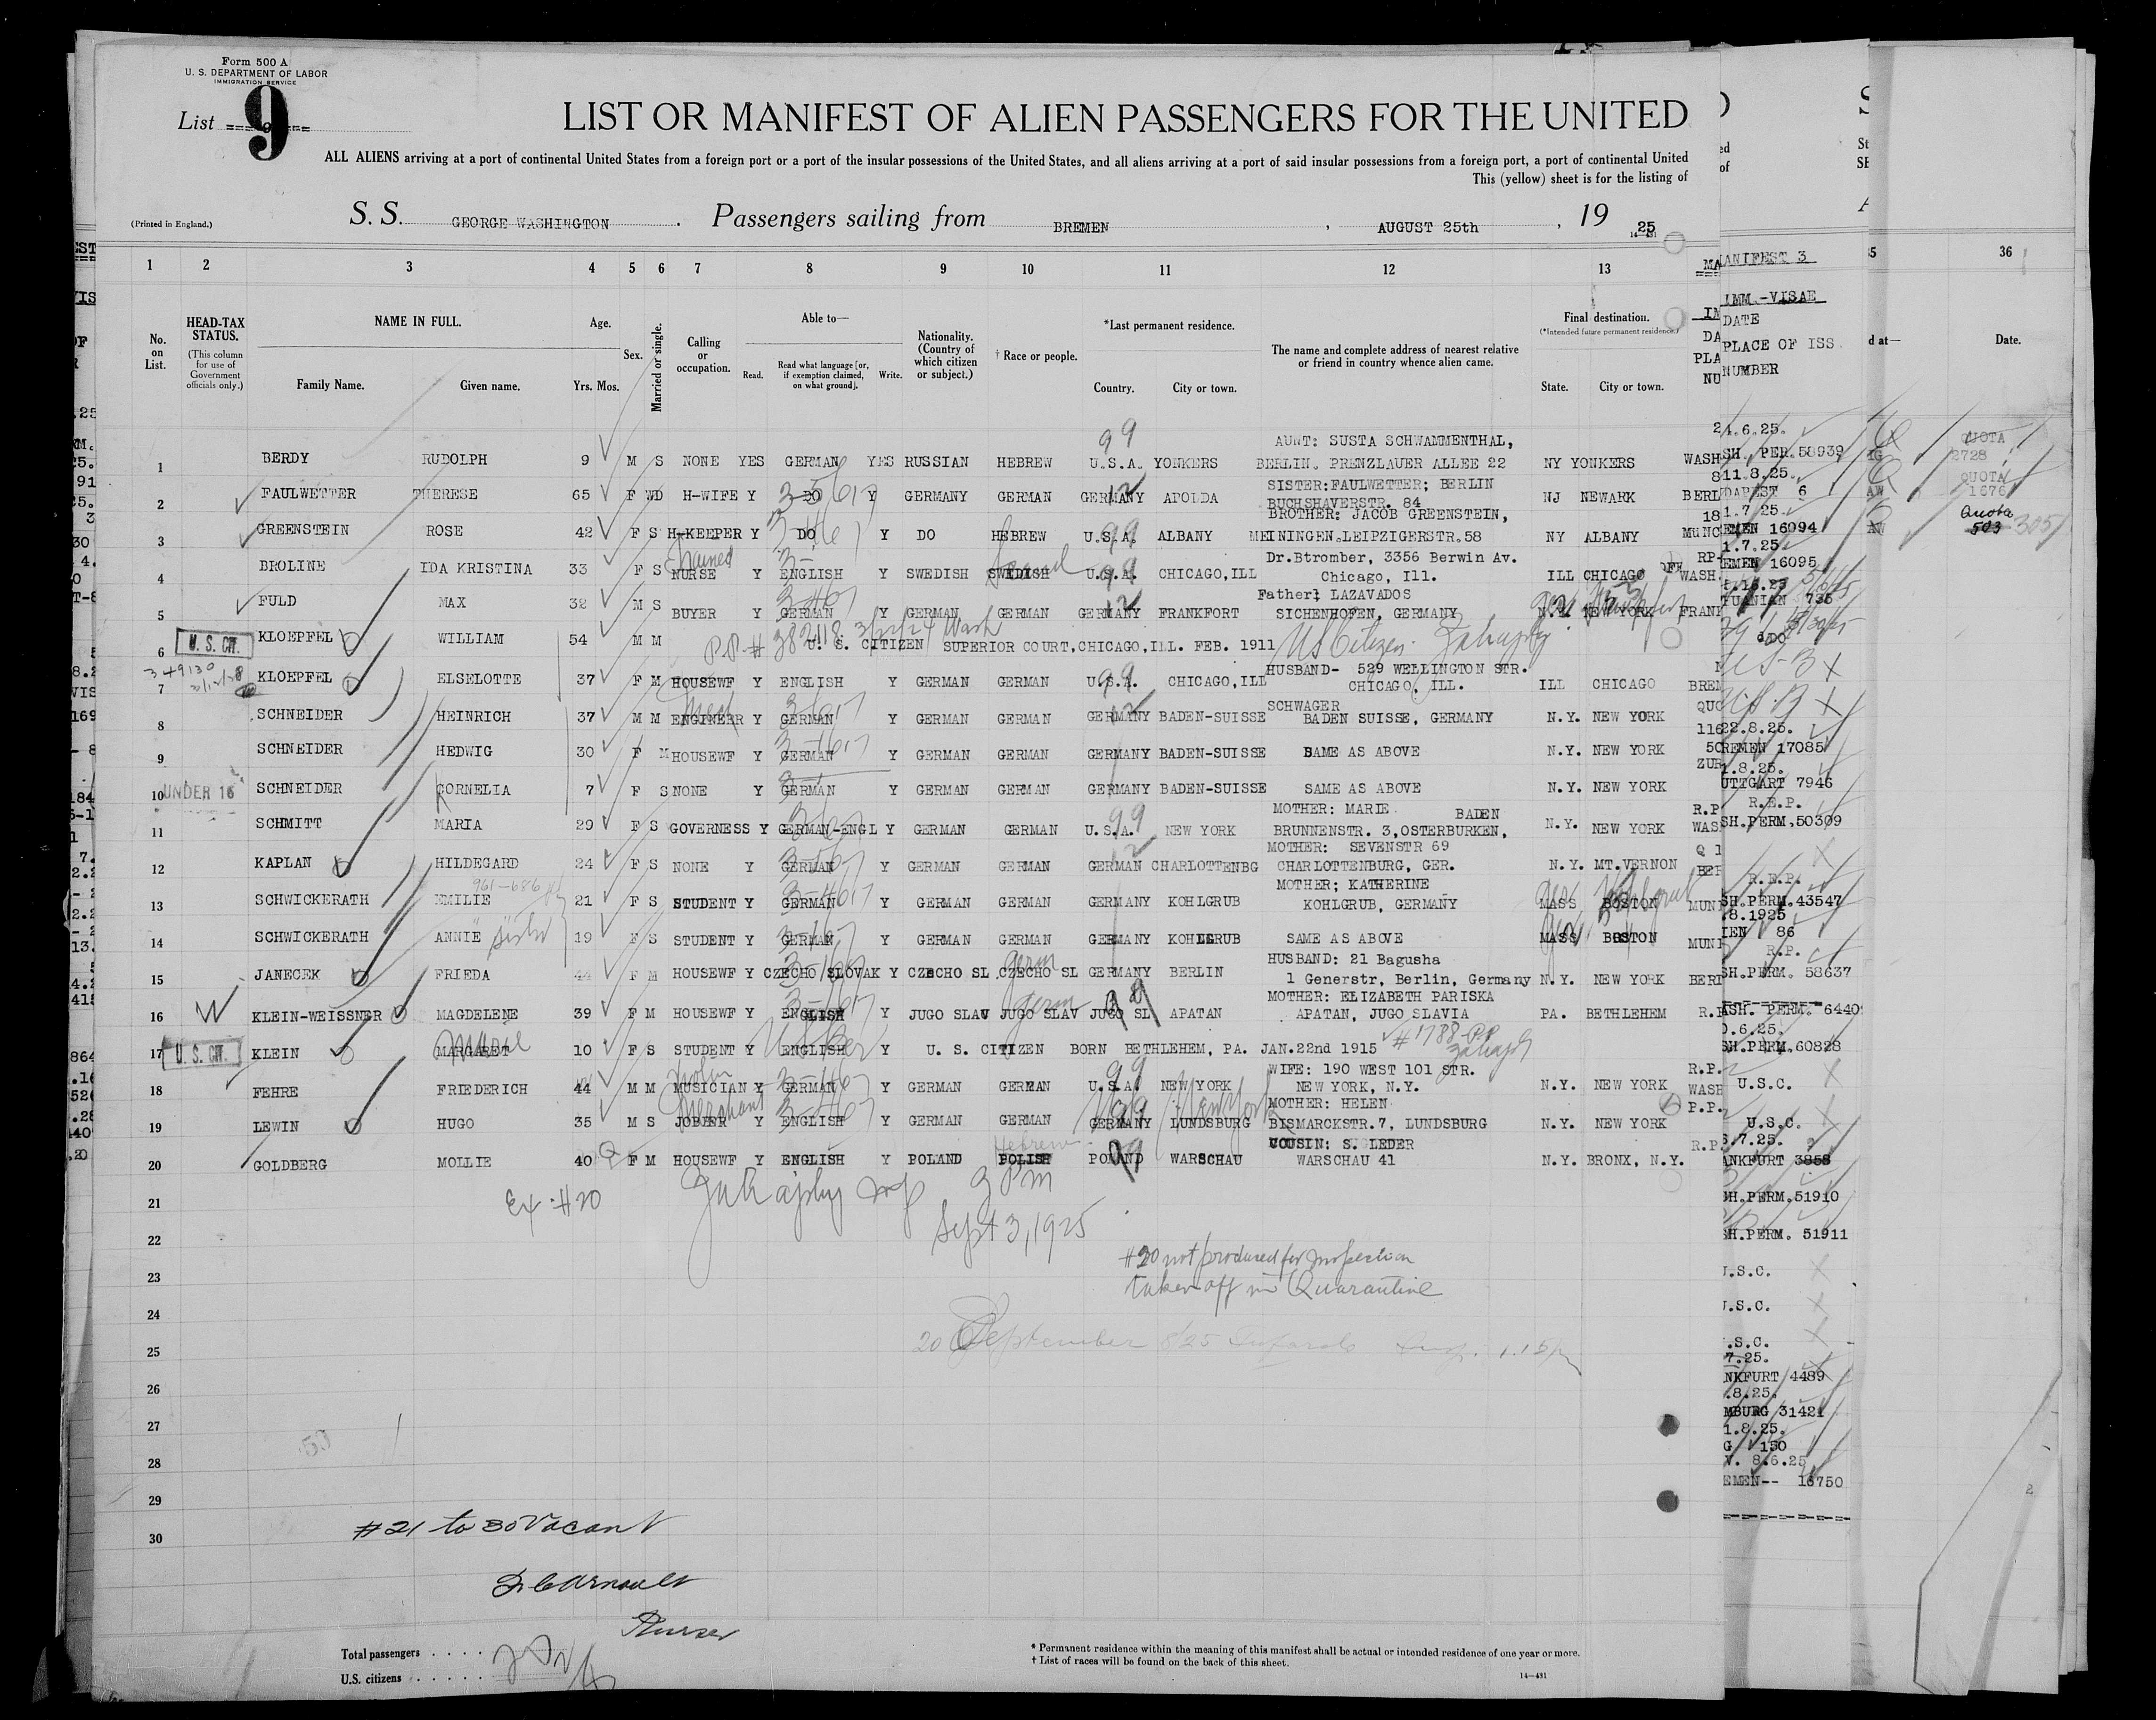 Form 500 A
U. S. DEPARTMENT OF LABOR
IMMIGRATION SERVICE
List 9
LIST OR MANIFEST OF ALIEN PASSENGERS FOR THE UNITED
ALL ALIENS arriving at a port of continental United States from a foreign port or a port of the insular possessions of the United States, and all aliens arriving at a port of said insular possessions from a foreign port, a port of continental United
This (yellow) sheet is for the listing of
(Printed in England.)
S. S. GEORGE WASHINGTON. Passengers sailing from BREMEN, AUGUST 25th, 19 25
14-431
1 2 3 4 5 6 7 8 9 10 11 12 13 36
MANIFEST 3
IMM.-VISAE
DATE
PLACE OF ISS
NUMBER
No. on List.
HEAD-TAX STATUS.
(This column for use of Government officials only.)
NAME IN FULL.
Family Name. Given name.
Age.
Yrs. Mos.
Sex.
Married or single.
Calling or occupation.
Able to—
Read. Read what language [or, if exemption claimed, on what ground]. Write.
Nationality. (Country of which citizen or subject.)
† Race or people.
*Last permanent residence.
Country. City or town.
The name and complete address of nearest relative or friend in country whence alien came.
Final destination.
(*Intended future permanent residence.)
State. City or town.
d at—
Date.
AUNT: SUSTA SCHWAMMENTHAL,
1 BERDY RUDOLPH 9 M S NONE YES GERMAN YES RUSSIAN HEBREW U.S.A. YONKERS BERLIN. PRENZLAUER ALLEE 22 NY YONKERS WASH
SISTER:FAULWETTER; BERLIN
2 FAULWETTER THERESE 65 F WD H-WIFE Y DO Y GERMANY GERMAN GERMANY APOLDA BUCHSHAVERSTR. 84 NJ NEWARK BERL
BROTHER: JACOB GREENSTEIN,
3 GREENSTEIN ROSE 42 F S H-KEEPER Y DO Y DO HEBREW U.S.A. ALBANY MEININGEN.LEIPZIGERSTR.58 NY ALBANY MUNC
Trained
Dr.Btromber, 3356 Berwin Av.
4 BROLINE IDA KRISTINA 33 F S NURSE Y ENGLISH Y SWEDISH SWEDISH U.S.A. CHICAGO,ILL Chicago, Ill. ILL CHICAGO WASH.
Father: LAZAVADOS
5 FULD MAX 32 M S BUYER Y GERMAN Y GERMAN GERMAN GERMANY FRANKFORT SICHENHOFEN, GERMANY N.Y. NEW YORK FRANK
P.P. # 382118 3/22/24 Wash
6 U. S. CIT. KLOEPFEL WILLIAM 54 M M U. S. CITIZEN SUPERIOR COURT,CHICAGO,ILL. FEB. 1911 US Citizen
349130
HUSBAND- 529 WELLINGTON STR.
7 KLOEPFEL ELSELOTTE 37 F M HOUSEWF Y ENGLISH Y GERMAN GERMAN U.S.A. CHICAGO,ILL CHICAGO, ILL. ILL CHICAGO BREM
SCHWAGER
8 SCHNEIDER HEINRICH 37 M M ENGINEER Y GERMAN Y GERMAN GERMAN GERMANY BADEN-SUISSE BADEN SUISSE, GERMANY N.Y. NEW YORK
9 SCHNEIDER HEDWIG 30 F M HOUSEWF Y GERMAN Y GERMAN GERMAN GERMANY BADEN-SUISSE SAME AS ABOVE N.Y. NEW YORK
10 UNDER 16 SCHNEIDER CORNELIA 7 F S NONE Y GERMAN Y GERMAN GERMAN GERMANY BADEN-SUISSE SAME AS ABOVE N.Y. NEW YORK
MOTHER: MARIE BADEN
11 SCHMITT MARIA 29 F S GOVERNESS Y GERMAN-ENGL Y GERMAN GERMAN U.S.A. NEW YORK BRUNNENSTR. 3,OSTERBURKEN, N.Y. NEW YORK
MOTHER: SEVENSTR 69
12 KAPLAN HILDEGARD 24 F S NONE Y GERMAN Y GERMAN GERMAN GERMAN CHARLOTTENBG CHARLOTTENBURG, GER. N.Y. MT.VERNON
MOTHER; KATHERINE
13 SCHWICKERATH EMILIE 21 F S STUDENT Y GERMAN Y GERMAN GERMAN GERMANY KOHLGRUB KOHLGRUB, GERMANY MASS BOSTON
14 SCHWICKERATH ANNIE sister 19 F S STUDENT Y GERMAN Y GERMAN GERMAN GERMANY KOHLGRUB SAME AS ABOVE MASS BOSTON
HUSBAND: 21 Bagusha
15 JANECEK FRIEDA 44 F M HOUSEWF Y CZECHO SLOVAK Y CZECHO SL CZECHO SL GERMANY BERLIN 1 Generstr, Berlin, Germany N.Y. NEW YORK
MOTHER: ELIZABETH PARISKA
16 KLEIN-WEISSNER MAGDELENE 39 F M HOUSEWF Y ENGLISH Y JUGO SLAV JUGO SLAV JUGO SL APATAN APATAN, JUGO SLAVIA PA. BETHLEHEM
17 U. S. CIT. KLEIN MARGARET 10 F S STUDENT Y ENGLISH Y U. S. CITIZEN BORN BETHLEHEM, PA. JAN.22nd 1915 #1788-PP
WIFE: 190 WEST 101 STR.
18 FEHRE FRIEDERICH 44 M M MUSICIAN Y GERMAN Y GERMAN GERMAN U.S.A. NEW YORK NEW YORK, N.Y. N.Y. NEW YORK
Merchant
MOTHER: HELEN
19 LEWIN HUGO 35 M S JOBBER Y ENGLISH Y GERMAN GERMAN GERMANY LUNDSBURG BISMARCKSTR.7, LUNDSBURG N.Y. NEW YORK
Hebrew
COUSIN: S. LEDER
20 GOLDBERG MOLLIE 40 F M HOUSEWF Y ENGLISH Y POLAND POLISH POLAND WARSCHAU WARSCHAU 41 N.Y. BRONX, N.Y.
21
Ex #20
3 PM
22
Sept 3, 1925
23
#20 not produced for inspection
taken off in Quarantine
24
25
20 September 8/25
26
27
28
29
30
#21 to 30 Vacant
Purser
Total passengers
U.S. citizens
* Permanent residence within the meaning of this manifest shall be actual or intended residence of one year or more.
† List of races will be found on the back of this sheet.
14-431
SH. PER.58939
11.8.25.
DAPEST 6
1.7.25.
EMEN 16094
1.7.25.
EMEN 16095
TUANIAN 735
22.8.25.
REMEN 17085
1.8.25.
UTTGART 7946
R.E.P.
SH.PERM.50309
R.E.P.
SH.PERM.43547
.8.1925
IEN 86
R.P.
SH.PERM. 58637
ASH. PERM. 6440
SH.PERM.60828
U.S.C.
U.S.C.
ANKFURT 3858
SH.PERM.51910
SH.PERM. 51911
.S.C.
.S.C.
.S.C.
7.25.
NKFURT 4489
.8.25.
MBURG 31421
1.8.25.
G 150
V. 8.6.25
EMEN-- 16750
QUOTA
2728
QUOTA
1676
Quota
503 305